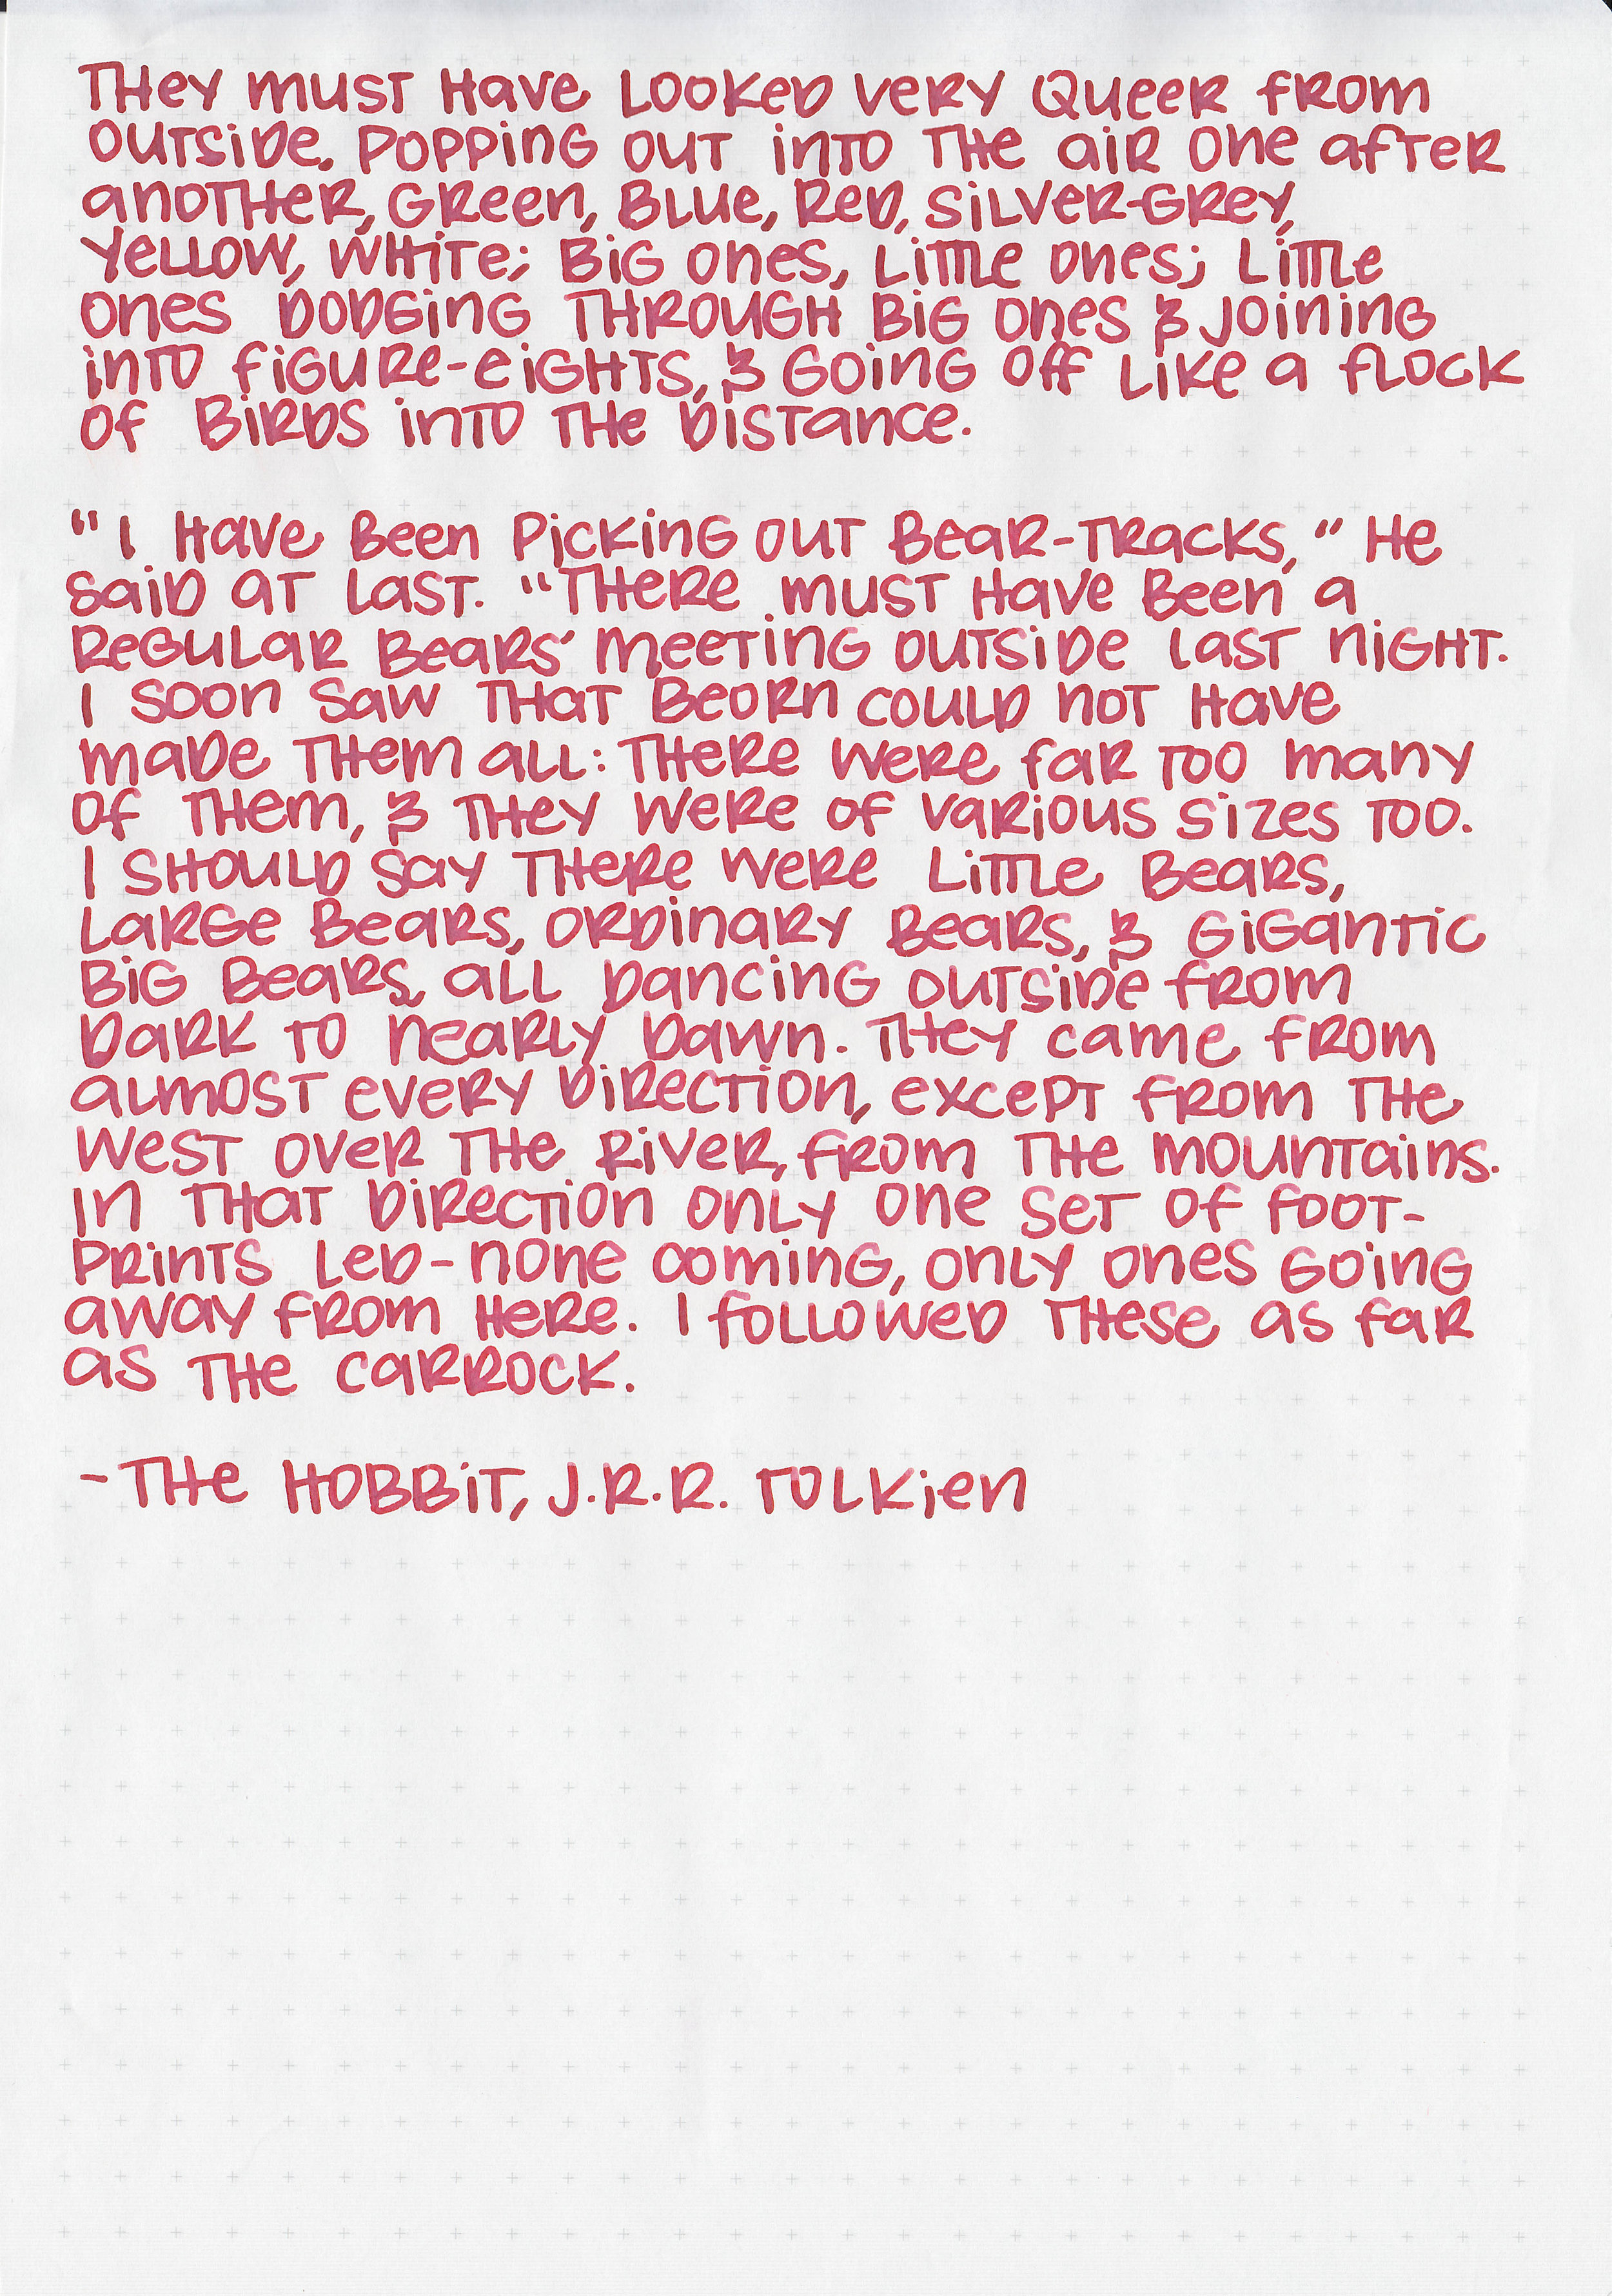 They must have looked very queer from
outside, popping out into the air one after
another, green, blue, red, silver-grey,
yellow, white; big ones, little ones; little
ones dodging through big ones & joining
into figure-eights, & going off like a flock
of birds into the distance.
"I have been picking out bear-tracks," he
said at last. "There must have been a
regular bears' meeting outside last night.
I soon saw that Beorn could not have
made them all: there were far too many
of them, & they were of various sizes too.
I should say there were little bears,
large bears, ordinary bears, & gigantic
big bears, all dancing outside from
dark to nearly dawn. They came from
almost every direction, except from the
west over the river, from the Mountains.
In that direction only one set of foot-
prints led-none coming, only ones going
away from here. I followed these as far
as the Carrock.
-The Hobbit, J.R.R. Tolkien